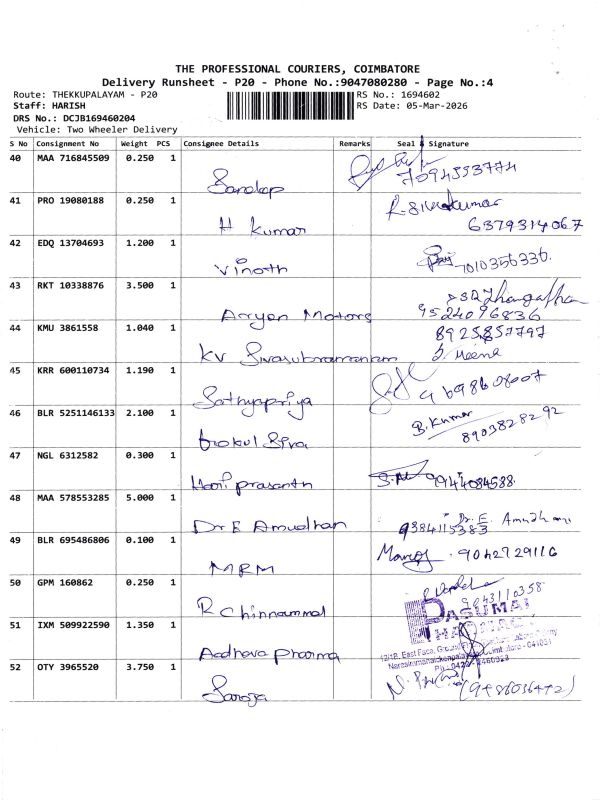 THE PROFESSIONAL COURIERS, COIMBATORE
Delivery Runsheet - P20 - Phone No.:9047080280 - Page No.:4
Route: THEKKUPALAYAM - P20 RS No.: 1694602
Staff: HARISH RS Date: 05-Mar-2026
DRS No.: DCJB169460204
Vehicle: Two Wheeler Delivery
S No Consignment No Weight PCS Consignee Details Remarks Seal & Signature
40 MAA 716845509 0.250 1
Sandap 7094553774
41 PRO 19080188 0.250 1 R. Sivakumar
H Kumar 6379314067
42 EDQ 13704693 1.200 1
Vinoth 7010356336.
43 RKT 10338876 3.500 1
Aaryan Motors 9524096836
44 KMU 3861558 1.040 1 8925857797
KV Sivasubramaniam J. Meena
45 KRR 600110734 1.190 1
Sathyapriya 9698608007
46 BLR 5251146133 2.100 1 B. Kumar
Gokul Siva 8903828292
47 NGL 6312582 0.300 1
Hari prasanth 9944084588.
48 MAA 578553285 5.000 1 Dr. E. Amudhan
Dr E Amudhan 9384115383
49 BLR 695486806 0.100 1 Manoj - 9042729116
MRM
50 GPM 160862 0.250 1
R Chinnammal 9843110358
51 IXM 509922590 1.350 1 PASUMAI PHARMACY
Aadhava pharma 12/1B, East Face, Coimbatore - 641031
52 OTY 3965520 3.750 1
Saroja (9486036472)